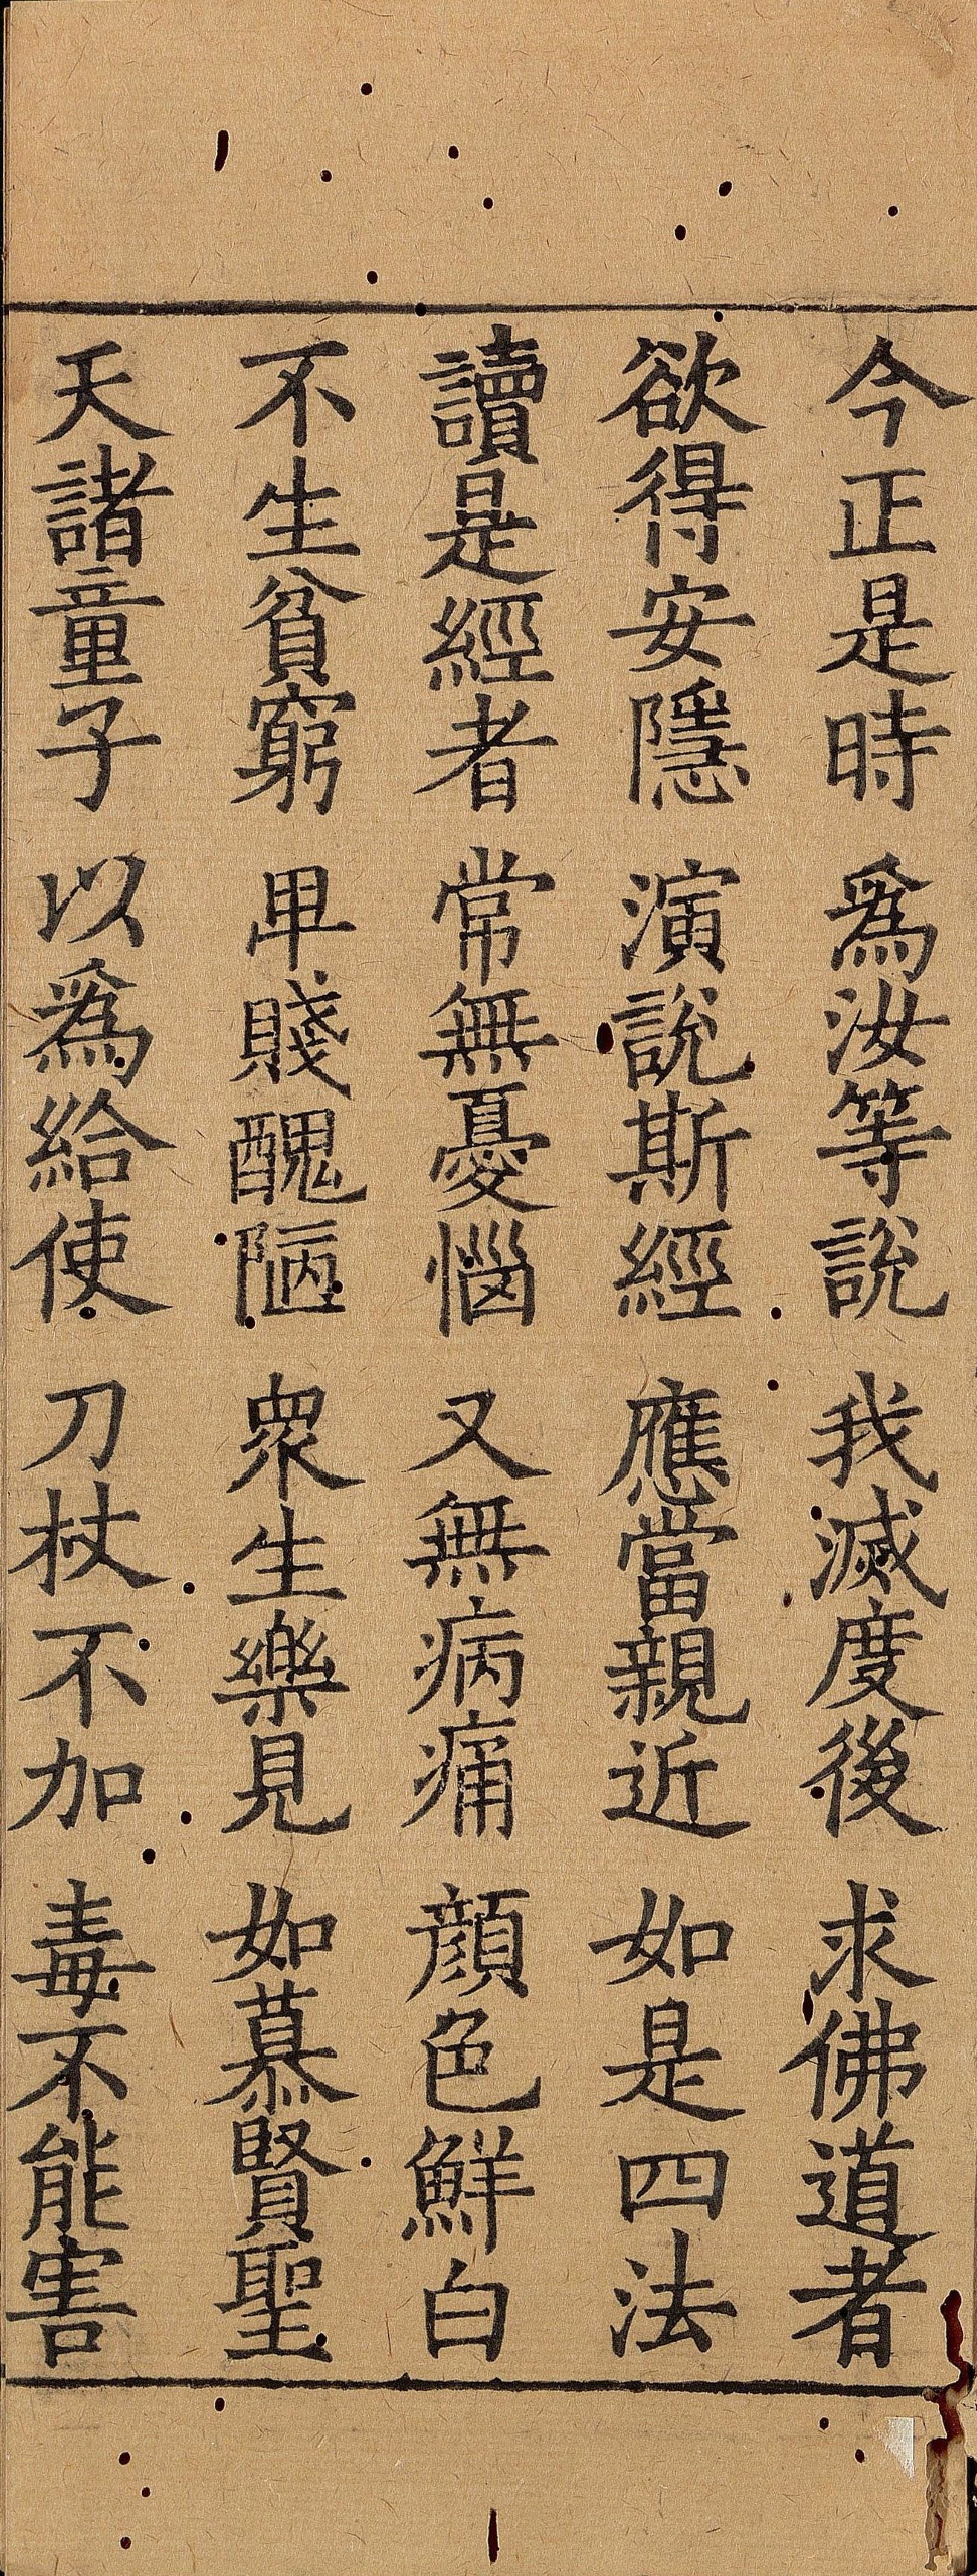 今正是時　爲汝等說　我滅度後　求佛道者
欲得安隱　演說斯經　應當親近　如是四法
讀是經者　常無憂惱　又無病痛　顏色鮮白
不生貧窮　卑賤醜陋　衆生樂見　如慕賢聖
天諸童子　以爲給使　刀杖不加　毒不能害